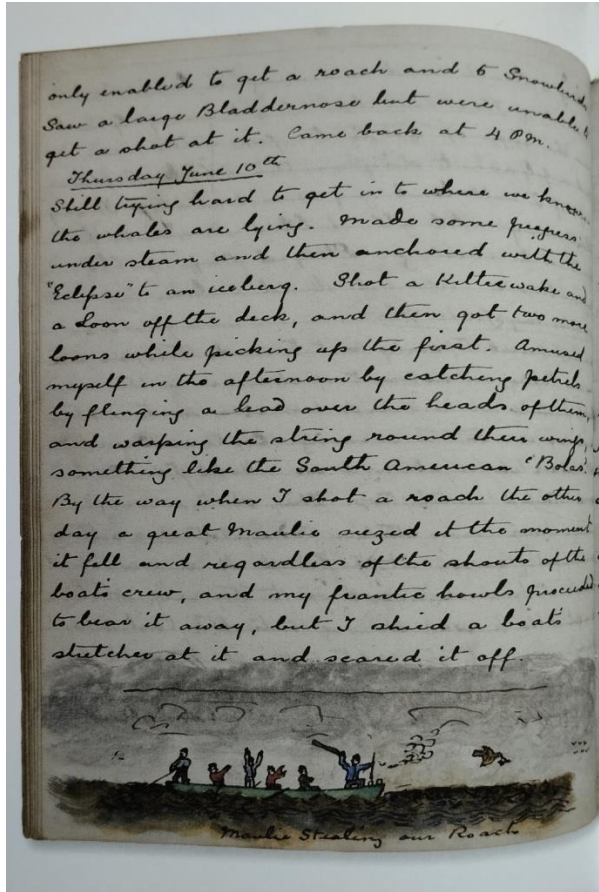 only enabled to get a roach and 6 Snowbirds
Saw a large Bladdernose but were unable to
get a shot at it. Came back at 4 P.M.
Thursday June 10th
Still trying hard to get in to where we know
the whales are lying. Made some progress
under steam and then anchored with the
"Eclipse" to an iceberg. Shot a Kittiewake and
a Loon off the deck, and then got two more
loons while picking up the first. Amused
myself in the afternoon by catching petrels
by flinging a lead over the heads of them,
and warping the string round their wings,
something like the South American "Bolas".
By the way when I shot a roach the other
day a great Maulie siezed it the moment
it fell and regardless of the shouts of the
boats crew, and my frantic howls proceeded
to bear it away, but I shied a boats
stretcher at it and scared it off.
Maulie Stealing our Roach